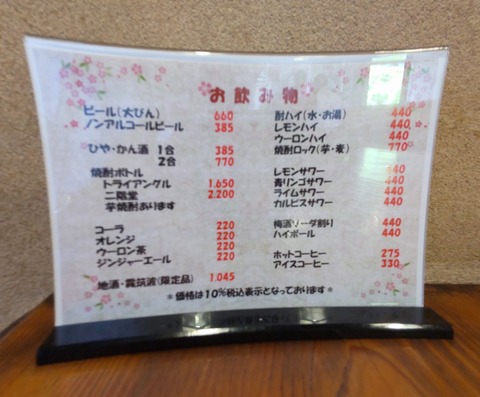 お飲み物
ビール(大びん) 660
ノンアルコールビール 385
ひや・かん酒 1合 385
2合 770
焼酎ボトル
トライアングル 1,650
二階堂 2,200
芋焼酎あります
コーラ 220
オレンジ 220
ウーロン茶 220
ジンジャーエール 220
地酒・霧筑波(限定品) 1,045
酎ハイ(水・お湯) 440
レモンハイ 440
ウーロンハイ 440
焼酎ロック(芋・麦) 770
レモンサワー 440
青リンゴサワー 440
ライムサワー 440
カルピスサワー 440
梅酒ソーダ割り 440
ハイボール 440
ホットコーヒー 275
アイスコーヒー 330
*価格は10%税込表示となっております*